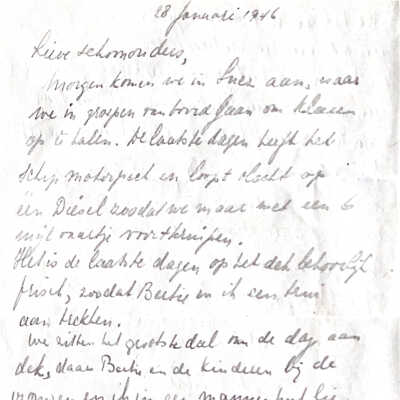 28 Januari 1946
Lieve schoonouders,
Morgen komen we in Suez aan, waar
we in groepen van boord gaan om kleren
op te halen. De laatste dagen heeft het
schip motorpech en loopt slecht op
één Diesel zoodat we maar met een 6
mijl vaartje voortkruipen.
Het is de laatste dagen op het dek behoorlijk
frisch, zoodat Bertie en ik een trui
aan trekken.
We zitten het grootste deel van de dag aan
dek, daar Bertie en de kinderen bij de
vrouwen en ik in een mannenhut